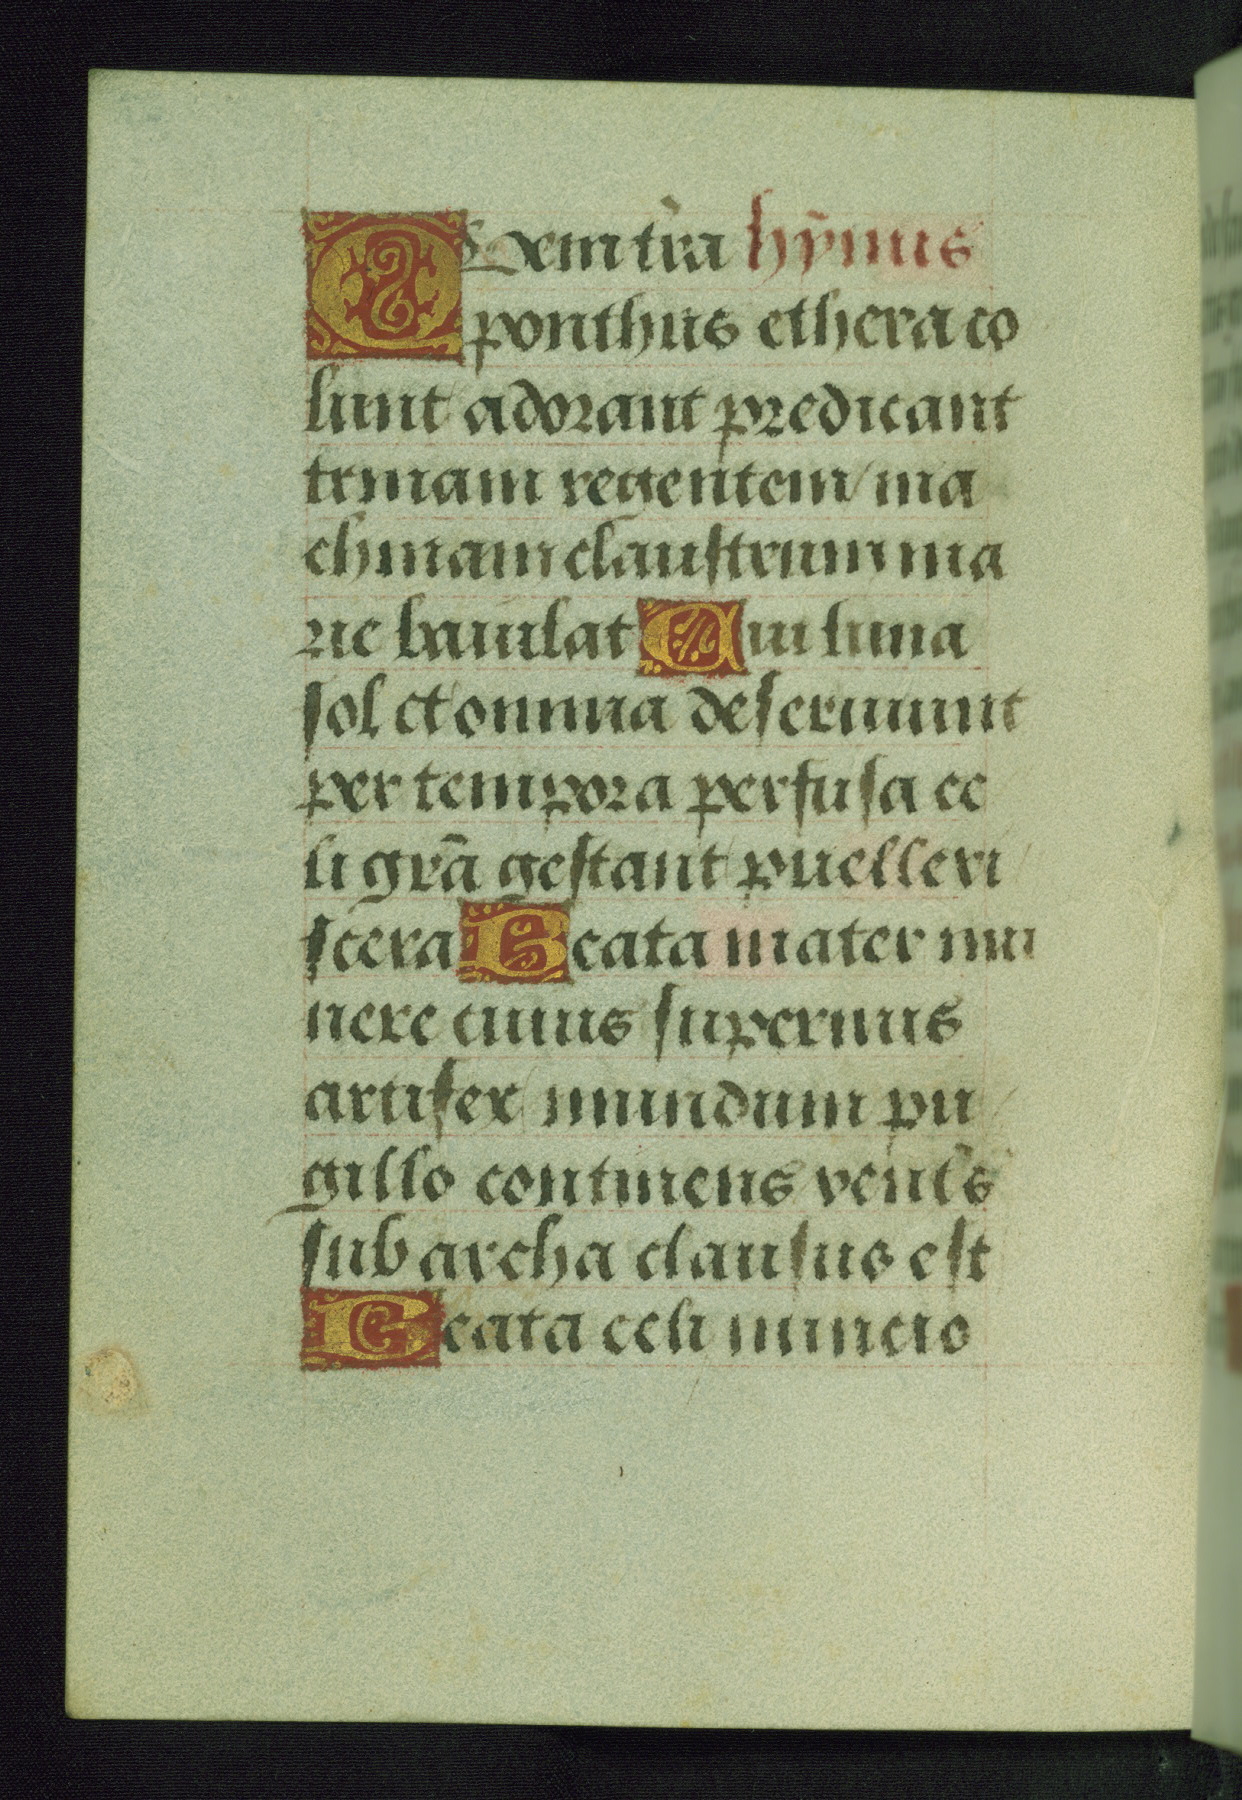 Quem trā hȳnus
ponthus ethera co
lunt adorant predicant
trinam regentem ma
chinam claustrum ma
rie baiulat Cui luna
sol et omnia deseruiunt
per tempora perfusa ce
li grā gestant puelle vi
scera Beata mater mu
nere cuius supernus
artifex mundum pu
gillo continens ventˢs
sub archa clausus est
Beata celi nuncio